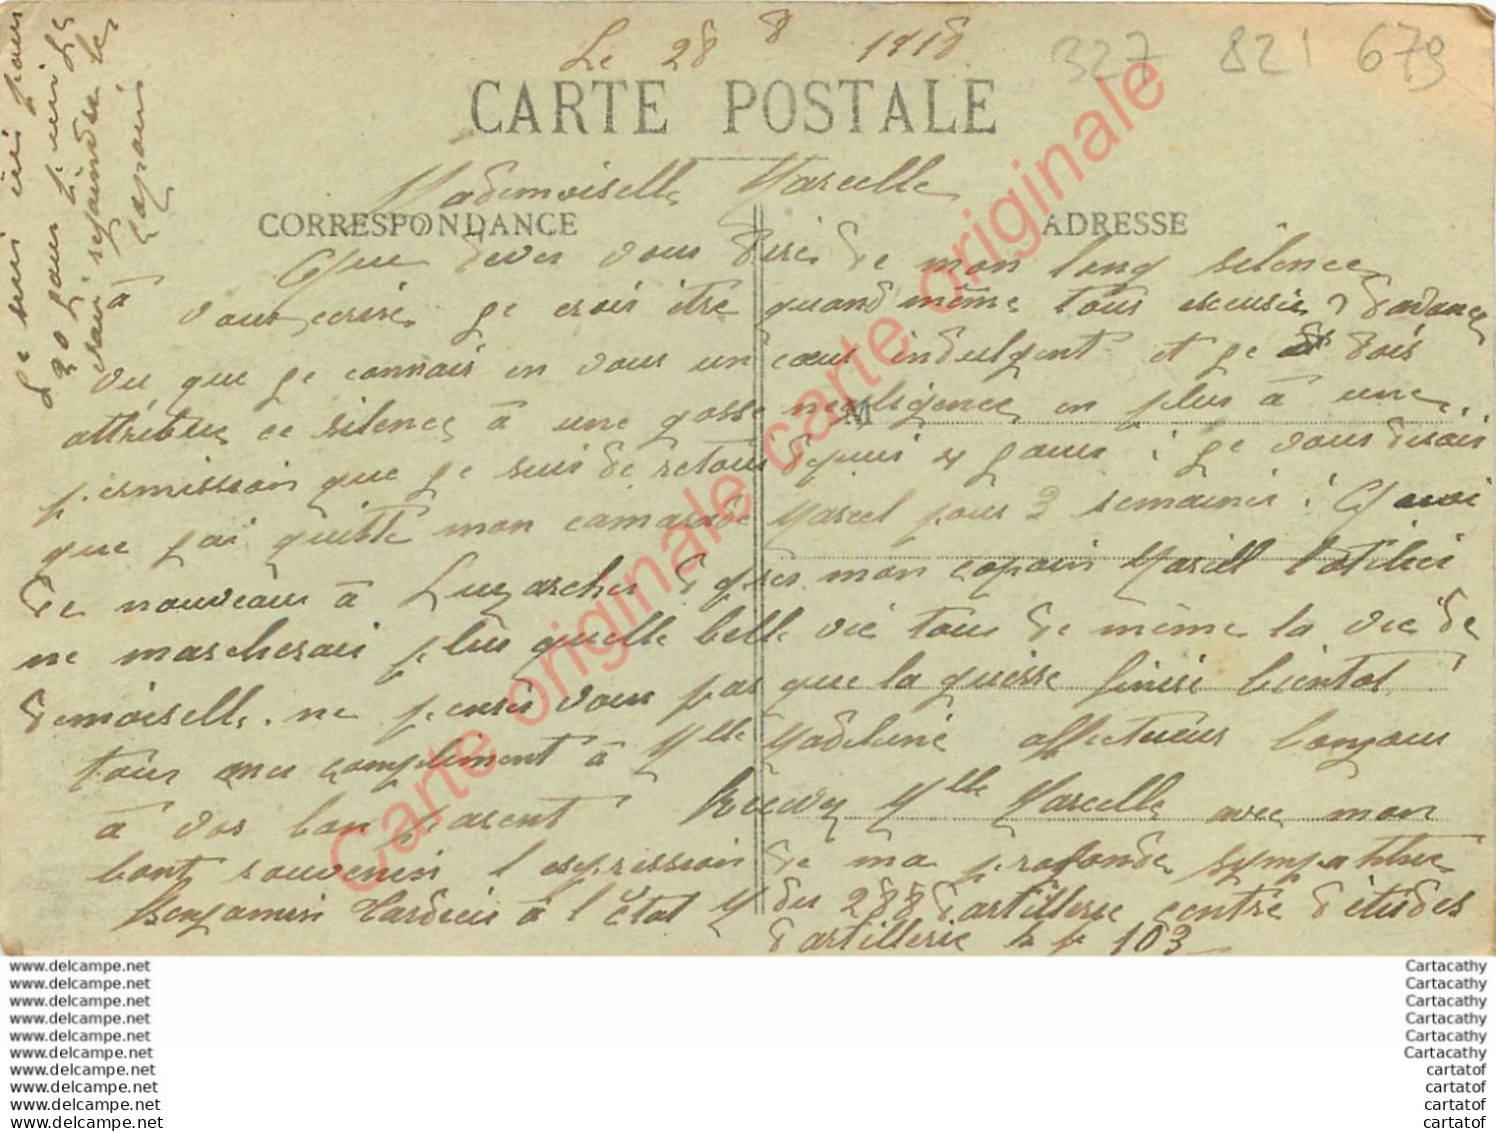 Le 28 8 1918
327 821 679
CARTE POSTALE
Mademoiselle Marcelle
CORRESPONDANCE
ADRESSE
Que devez vous dire de mon long silence
à vous ecrire, je crois être quand même tous excusié davance
vu que je connais en vous un cœur indulgent et je dois
attribuer ce silence à une gosse negligence en plus à une
permission que je suis de retour depuis 4 jours : je vous dirais
que jai quitté mon camarade Marcel pour 3 semaines :
de nouveaux à Luzarches mon copain
ne marcherais plus quelle belle vie tous de même la vie de
demoiselle. ne pensés vous pas que la guerre finise bientot
tous mes compliment à Mlle Madeleine affectueux bonjour
à vos bon parent Mlle Marcelle avec mon
bont souvenir l expression de ma profonde sympathie
Benjamin à l'État M du 288 d'artillerie centre d'études
d artillerie 103
M
Je suis ici pour
20 jours
rejaindre le
Carte originale carte originale carte originale
www.delcampe.net
www.delcampe.net
www.delcampe.net
www.delcampe.net
www.delcampe.net
www.delcampe.net
www.delcampe.net
www.delcampe.net
www.delcampe.net
www.delcampe.net
Cartacathy
Cartacathy
Cartacathy
Cartacathy
Cartacathy
Cartacathy
cartatof
cartatof
cartatof
cartatof